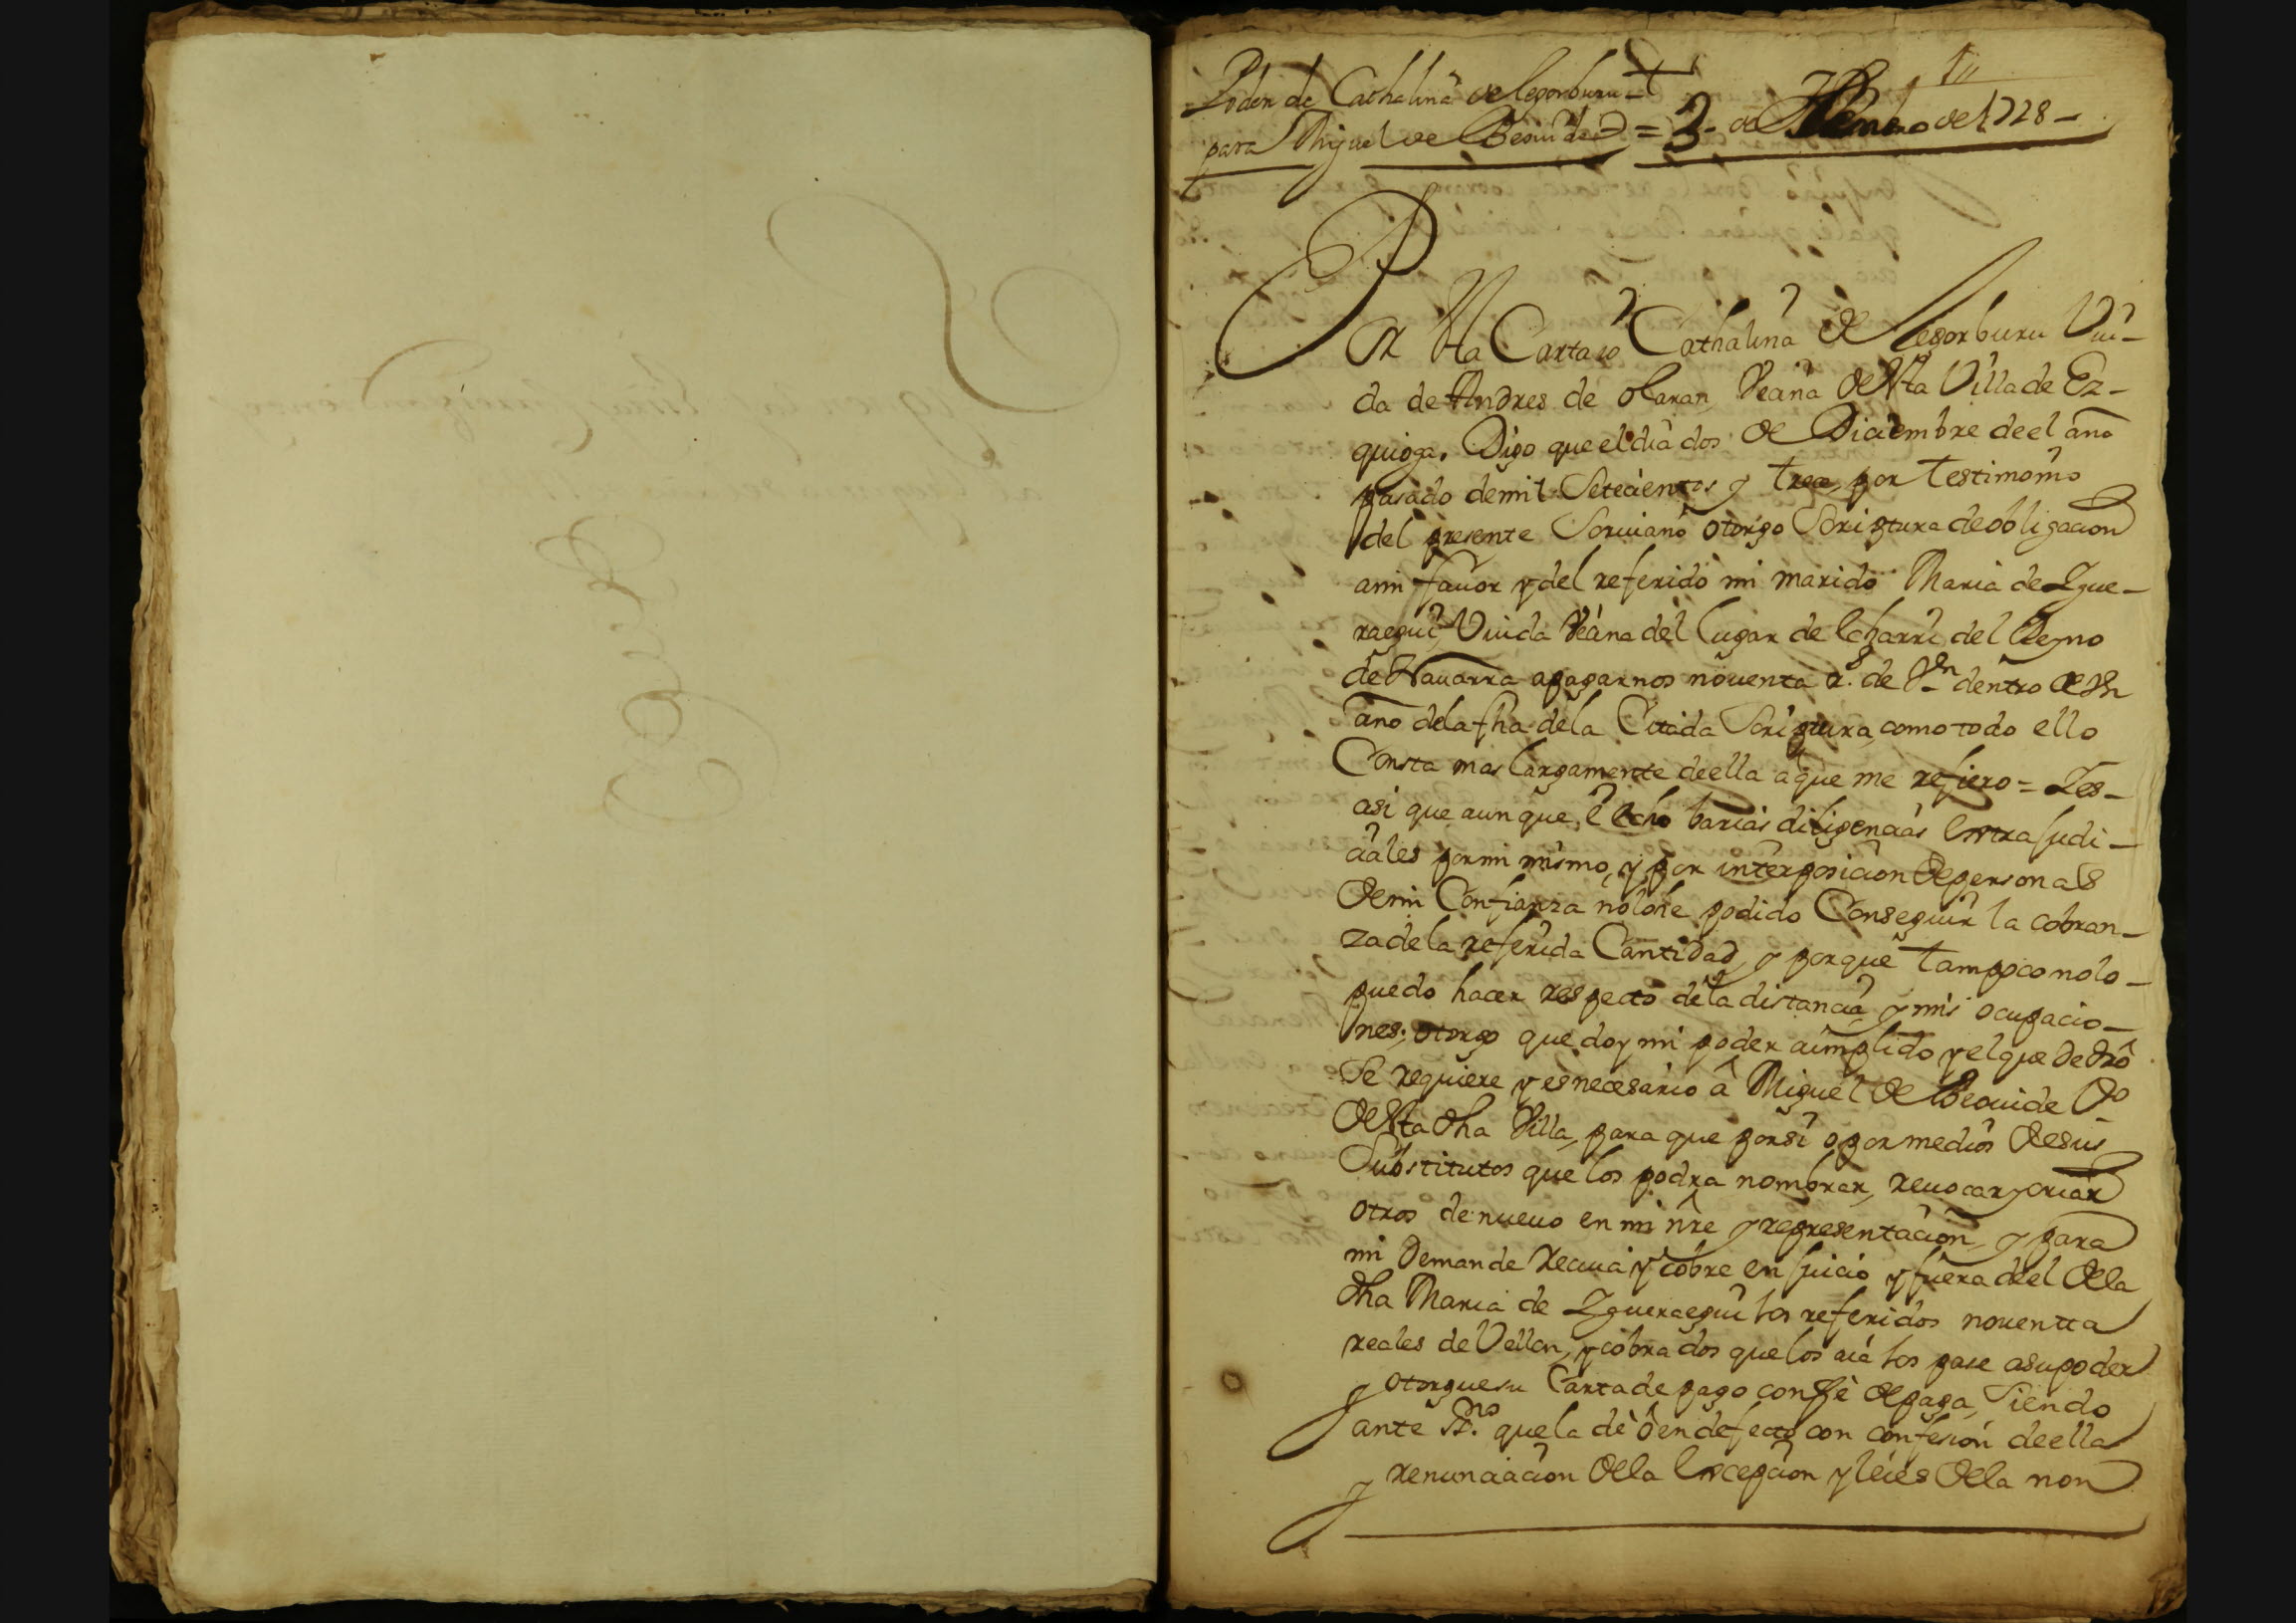 Poder de Cathalina de Legorburu
para Miguel de Beouide = 3 de Henero de 1728 -
Por esta Carta io Cathalina de Legorburu Viu-
da de Andres de olaran Veçina de esta Villa de Ez-
quioga. Digo que el dia dos de Diciembre de el año
pasado de mil Setecientos y trece, por testimonio
del presente Scriuano otorgo Scriptura de obligacion
a mi fauor y del referido mi marido Maria de Ygue-
raegui, Viuda Veçina del lugar de Echarri del Reyno
de Nauarra a pagarnos nouenta rs. de Vn dentro de Vn
año de la fha de la Citada Scriptura, como todo ello
Consta mas largamente de ella a que me refiero = Y es-
asi que aunque, e echo barias diligencias Extrajudi-
ciales por mi mismo, y por interposicion de personas
de mi Confianza no lo he podido Conseguir la cobran-
za de la referida Cantidad, y porque tampoco no lo
puedo hacer respecto de la distancia, y mis ocupacio-
nes; otorgo que doy mi poder cumplido y el que de dro
Se requiere y es necesario a Miguel de Beouide Vo
de esta dha Villa, para que por si o por medios de sus
Substitutos que los podra nombrar, reuocar y criar
otros de nueuo en mi nre y representacion, y para
mi demande reciua y cobre en juicio y fuera de el de la
dha Maria de Ygueraegui los referidos nouenta
reales de Vellon, y cobrados que los aia los pase a su poder
y otorgue su Carta de pago con fè de paga, Siendo
ante Sno. que la dè ò en defecto con confesion de ella
y renunciacion de la Excepcion y leies de la non